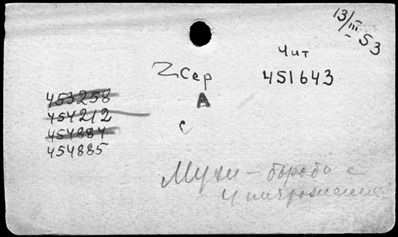 13/III 53
Чит
Z Сер 451643
А
453258
454212
454884
454885
с
Мухи - борьба с